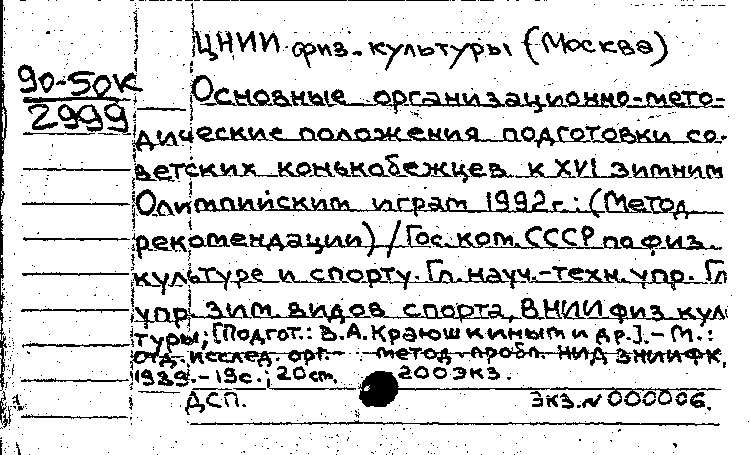 ЦНИИ физ. культуры (Москва)
90-50К
2999
Основные организационно-мето-
дические положения подготовки со-
ветских конькобежцев к XVI зимним
Олимпийским играм 1992г.: (Метод
рекомендации) / Гос. ком. СССР по физ.
культуре и спорту. Гл. науч.-техн. упр. Гл
упр. зим. видов спорта, ВНИИ физ куль
туры; [Подгот.: В.А. Краюшкиным и др.]. - М.:
Отд. исслед. орг.- метод. пробл. НИД ВНИИФК,
1989. - 19с.; 20см. 200экз.
ДСП. Экз. N 000006.